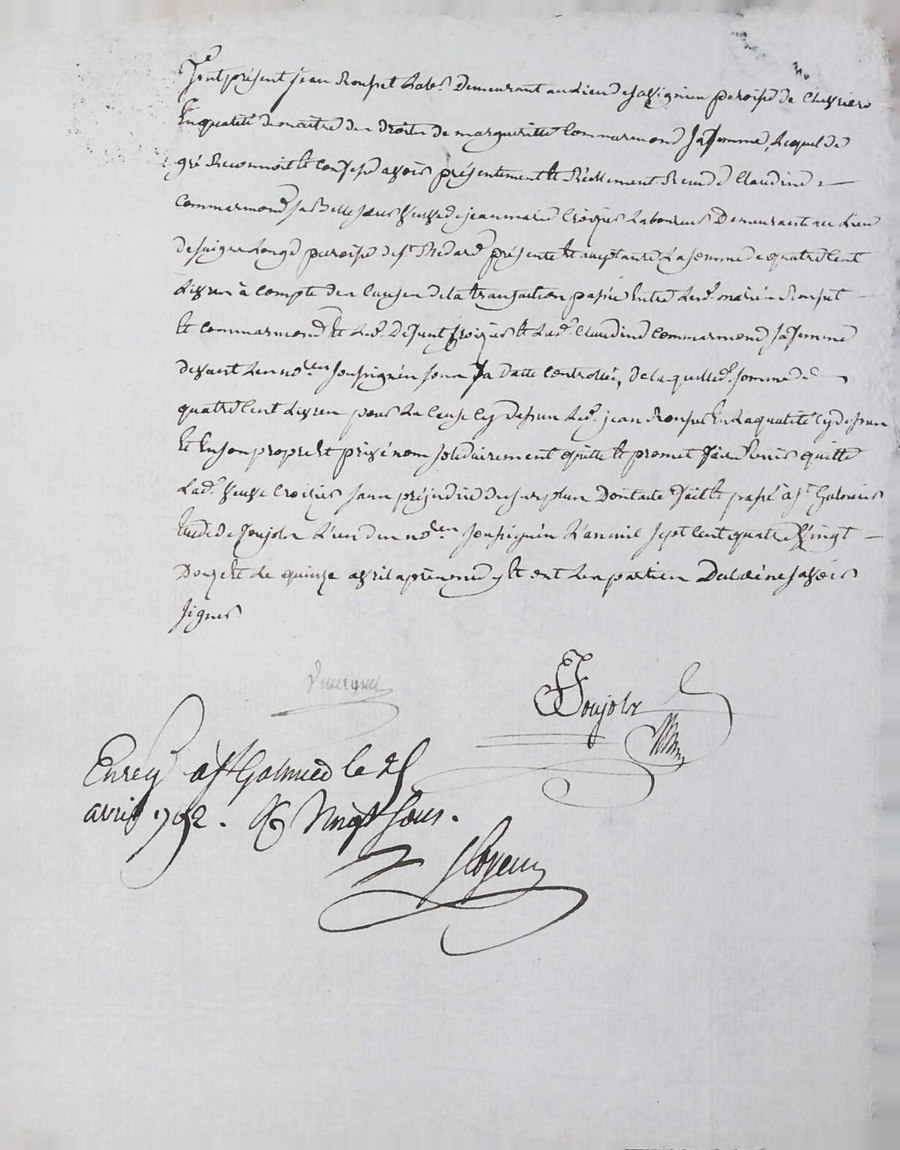 Fut présent jean Rousset Lab.r Demeurant au lieu de paroisse de Chevrieres
En qualité de maitre des droits de margueritte Commarmond Sa femme, Lequel de
gré Reconnoit et confesse avoir présentement et Réellement Reçu de Claudine
Commarmond Sa Belle Sœur veuve de jean marie Croizier Laboureur Demeurant au Lieu
de faigue Longe paroisse de St Medard présente et acceptante La somme de quatre Cent
Livres à compte des Causes de la transaction passée Entre Led. mariés Rousset
Et Commarmond Et Led. Defunt Croizier Et Lad. Claudine Commarmond Sa femme
devant Les no.res Soussignés sous Sa Datte Controllée, de laquelle d. somme de
quatre Cent Livres pour La Cause Cy dessus Led. jean Rousset En La qualité Cy dessus
Et En son propre Et privé nom solidairement quitte Et promet faire tenir quitte
Lad. veuve Croizier sans préjudice du surplus Dont acte fait Et passé à St Galmier
Etude de Poujolx L'un des no.res Soussignés L'an mil Sept Cent quatre Vingt
Douze Et Le quinze avril après midy Et ont Les parties Déclaré ne Savoir
Signer
Poujolx
Enreg. à St Galmier le 25
avril 1792. Vingt Sous.